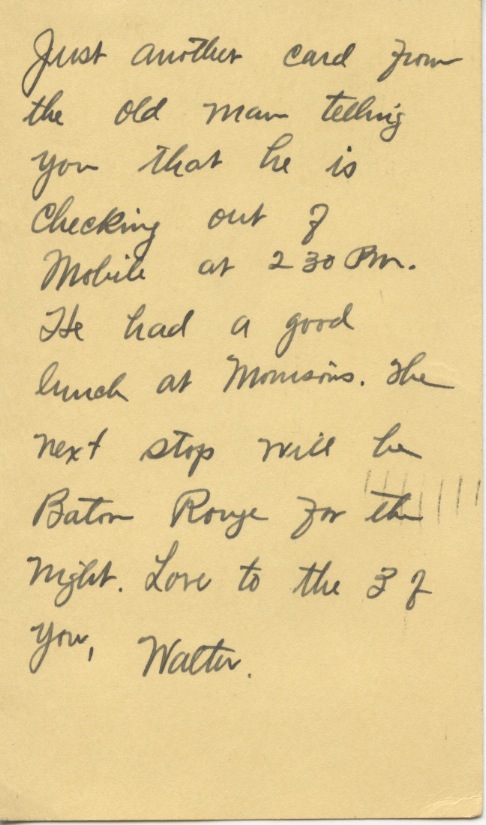 Just another card from
the old man telling
you that he is
Checking out of
Mobile at 2 30 Pm.
He had a good
lunch at Morrisons. The
next stop will be
Baton Rouge for the
night. Love to the 3 of
you, Walter.